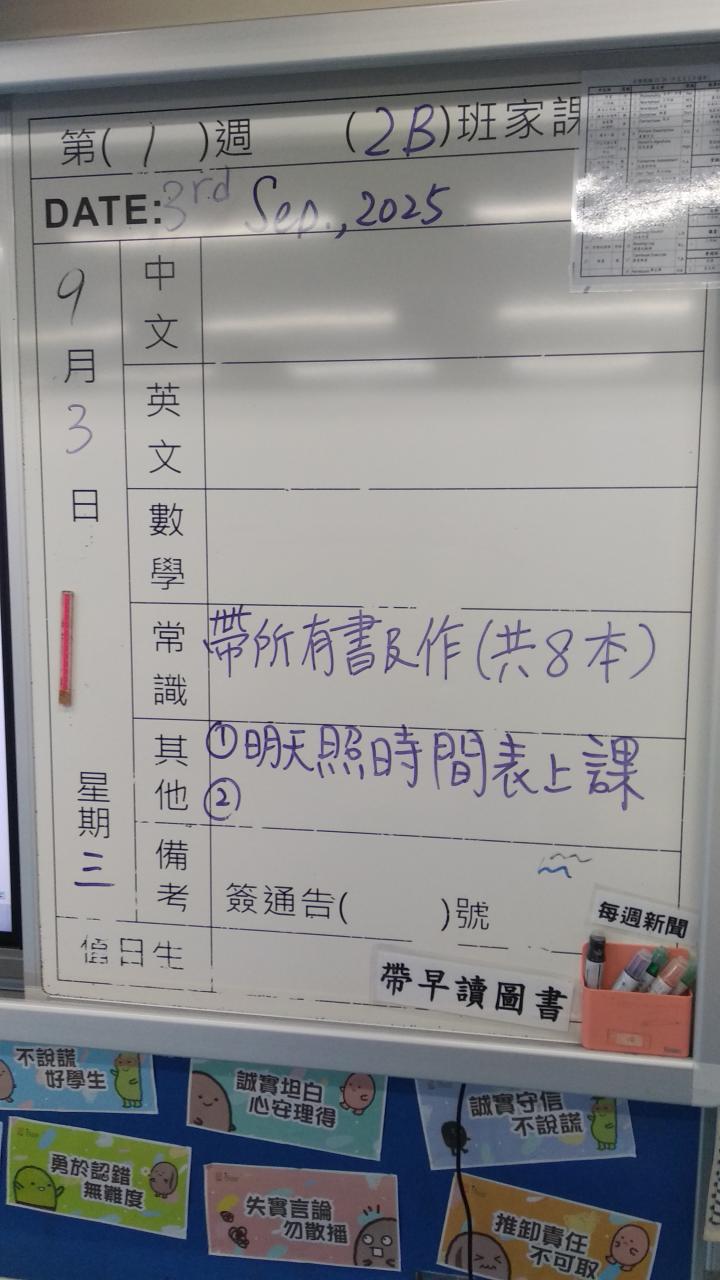 第( 1 )週 (2B)班家課
DATE: 3rd Sep., 2025
9月3日
星期三
中文
英文
數學
常識 帶所有書及作(共8本)
其他 ①明天照時間表上課
②
備考 簽通告( )號
值日生
每週新聞
帶早讀圖書
不說謊
好學生
誠實坦白
心安理得
誠實守信
不說謊
勇於認錯
無難度
失實言論
勿散播
推卸責任
不可取